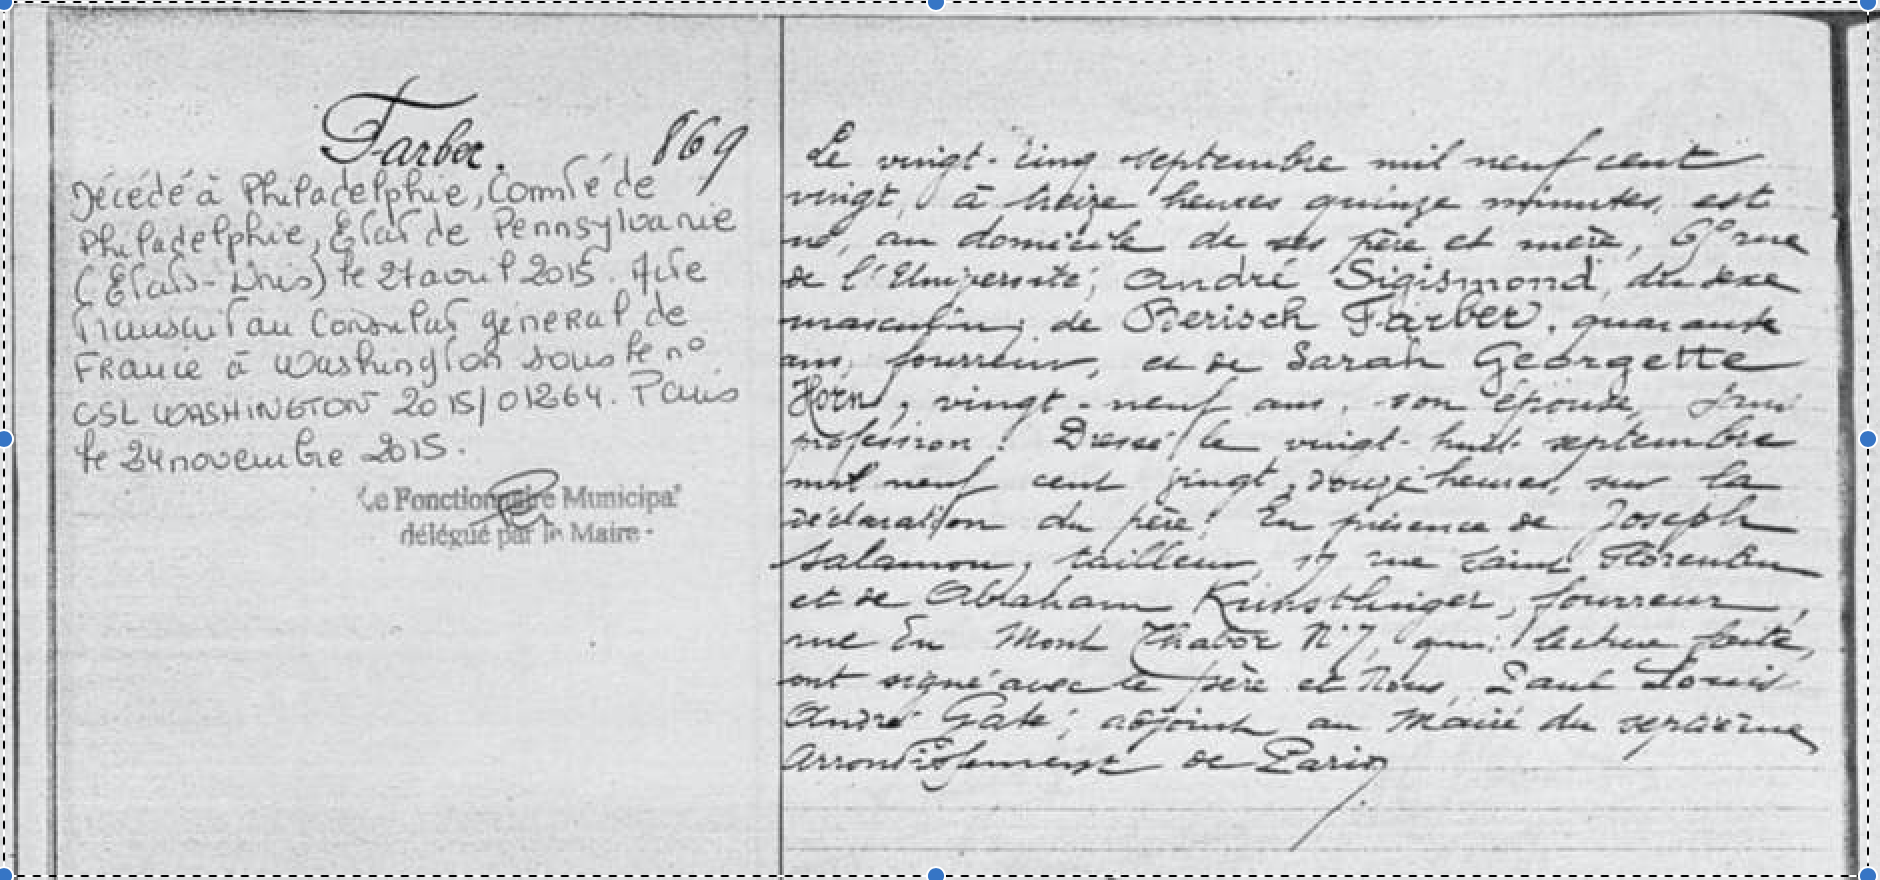 Farber.
869
Décédé à Philadelphie, Comté de
Philadelphie, Etat de Pennsylvanie
(Etats-Unis) le 27 avril 2015. Acte
Transcrit au Consulat général de
France à Washington sous le n°
CSL WASHINGTON 2015/01264. Paris
le 24 novembre 2015.
Le Fonctionnaire Municipal
délégué par le Maire -
Le vingt-cinq septembre mil neuf cent
vingt, à treize heures quinze minutes, est
né, au domicile de ses père et mère, rue
de l'Université, André Sigismond, du sexe
masculin, de Berisch Farber, quarante
ans, fourreur, et de Sarah Georgette
Horn, vingt-neuf ans, son épouse, sans
profession. Dressé le vingt-huit septembre
mil neuf cent vingt, douze heures, sur la
déclaration du père. En présence de Joseph
Salamon, tailleur, 17 rue Saint Florentin
et de Abraham Kunstlinger, fourreur,
rue du Mont Thabor N° 7, qui, lecture faite,
ont signé avec le père et Nous, Paul Louis
André Gaté, adjoint au Maire du septième
Arrondissement de Paris